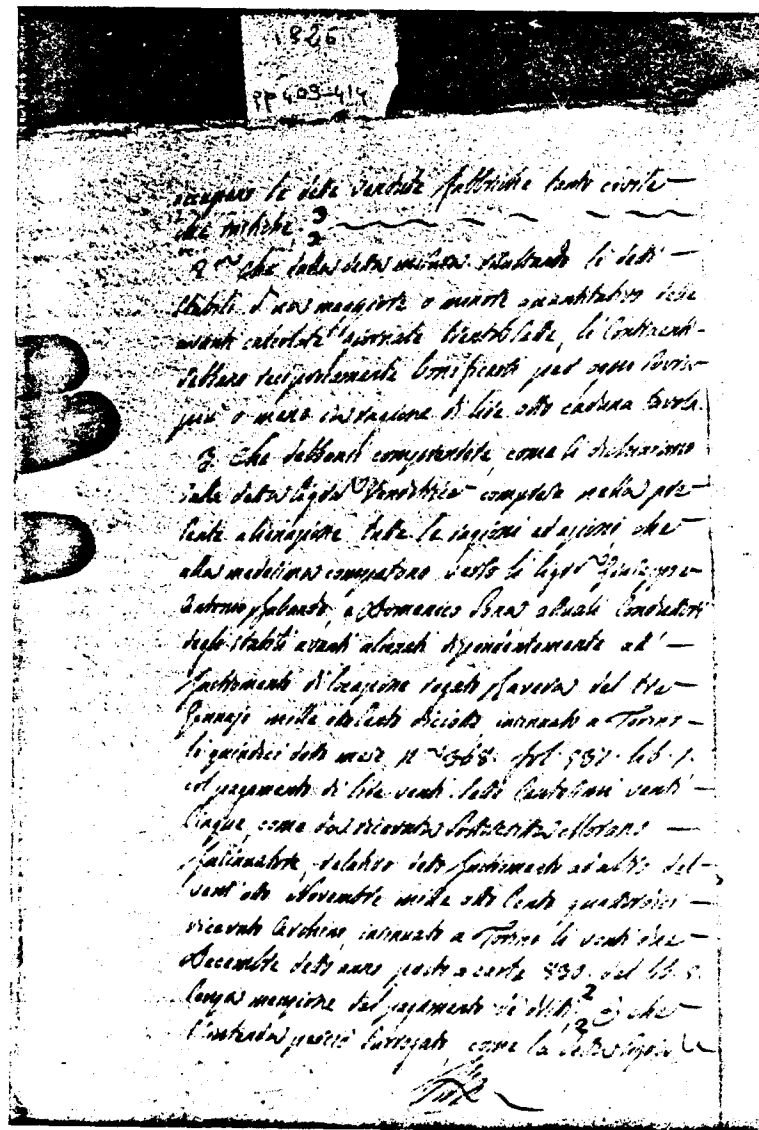 1826
pp 403-414
occupano le dette vendute fabbriche tanto civile
che rustiche.
2 Che dalla detta misura risultando li detti
stabili d'una maggiore o minore quantitativo delle
avanti calcolate giornate trentasette, li Contraenti
debbano reciprocamente bonificarsi per ogni
più o meno in ragione di lire otto caduna tavola.
3 Che debbansi comprendere, come si dichiarano
dalla detta Sigra Venditrice comprese nella pre-
sente alienazione tutte le ragioni ed azioni che
alla medesima competono verso li Sigri Giuseppe
Antonio e Domenico attuali Conduttori
degli stabili avanti alienati dipendentemente ad
Instromento di locazione rogato del tre
Gennajo mille otto cento diciotto insinuato a Torino
li quindici detto mese n 368 fol 537 lib 1
col pagamento di lire venti sette Centesimi venti
cinque, come da ricevuta sottoscritta
Insinuatore, relativo detto Instromento ad altro del
vent'otto Novembre mille otto Cento quattordici
ricevuto insinuato a Torino li venti due
Decembre detto anno a carte 830 del lib
senza menzione del pagamento de dritti, e che
s'intenda perciò surrogato, come la detta